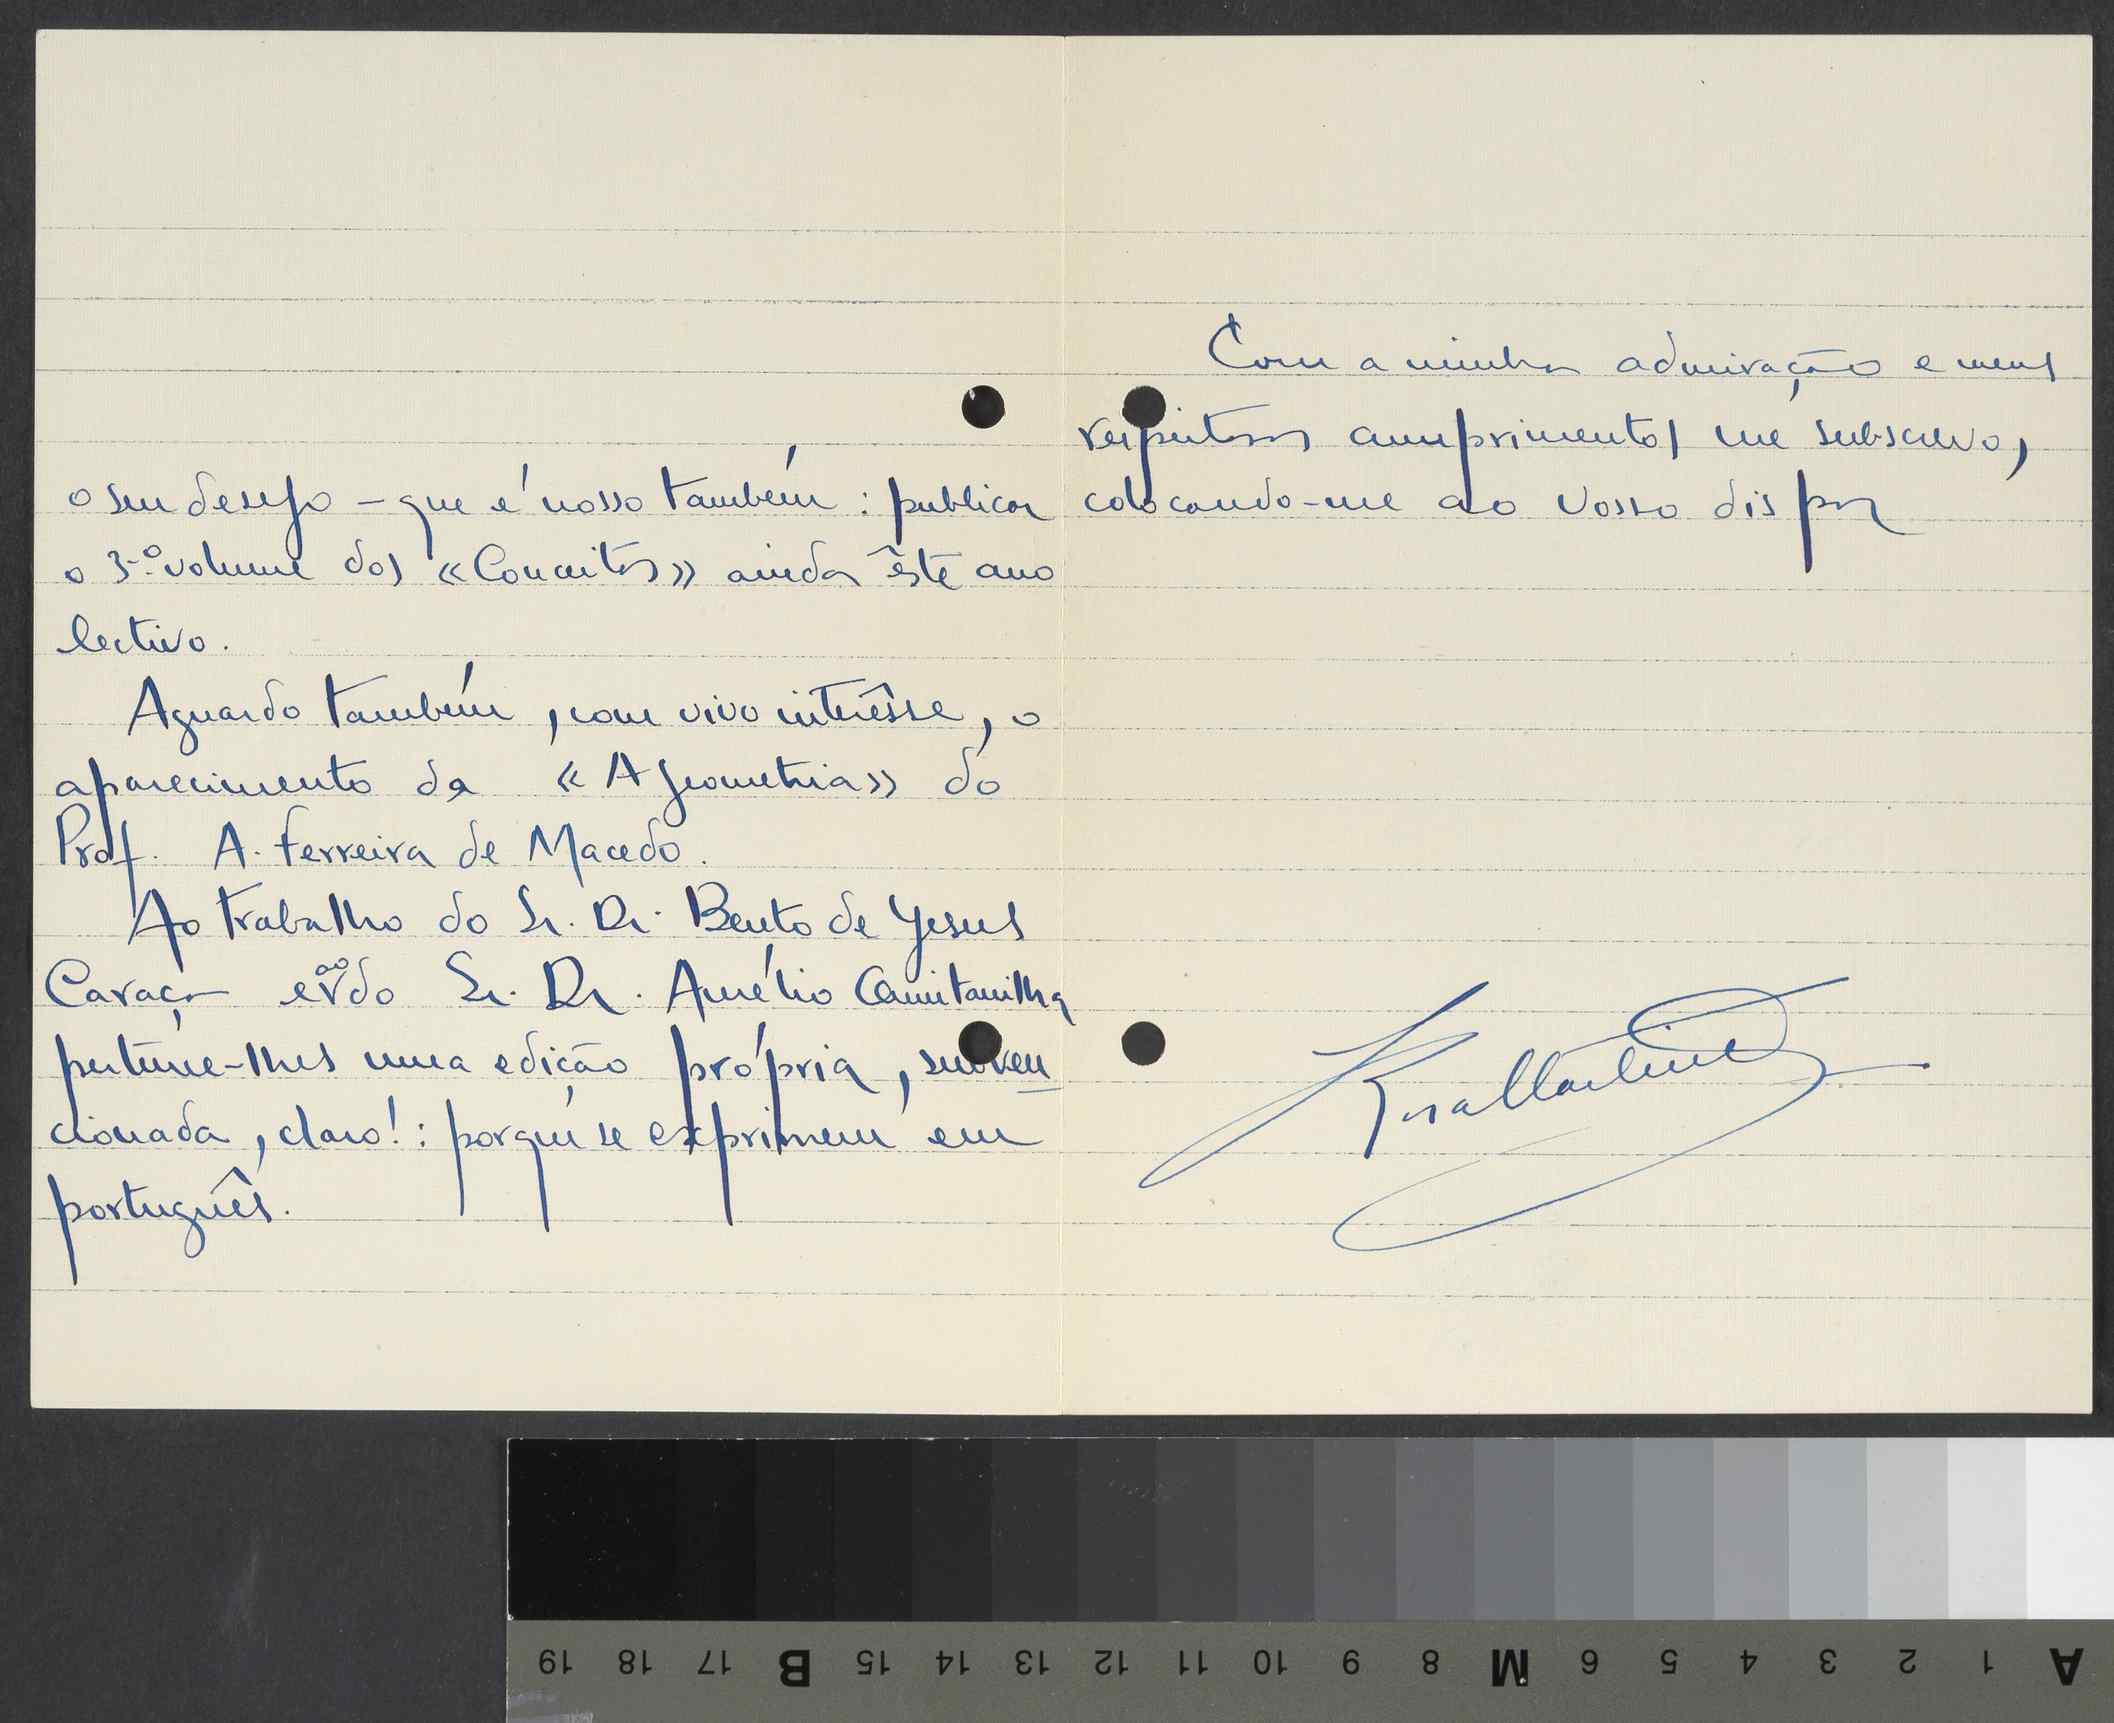 o seu desejo – que é nosso também: publicar
o 3.º volume dos «Conceitos» ainda êste ano
lectivo.
Aguardo também, com vivo interêsse, o
aparecimento da «A geometria» do
Prof. A. Ferreira de Macedo.
Ao trabalho do Sr. Dr. Bento de Jesus
Caraça e ao do Sr. Dr. Aurélio Quintanilha
pertence-lhes uma edição própria, subven
cionada, claro!: porque se exprimem em
português.
Com a minha admiração e meus
respeitosos cumprimentos me subscrevo,
colocando-me ao Vosso dispor
19 18 17 B 15 14 13 12 11 10 9 8 M 6 5 4 3 2 1 A